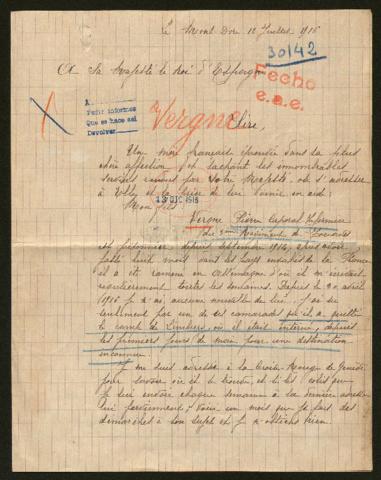 Le Mont Dore 12 Juillet 1916
30142
A Sa Majesté le Roi d'Espagne
Fecho
e.a.e.
A
Pedir informes
Que se hace así
Devolver
Vergne
Sire,
Une mère française éprouvée dans sa plus
chère affection, et sachant les innombrables
services rendus par Votre Majesté ose s'adresser
à Elle et la prier de lui venir en aide:
13 DIC 1916
Mon fils
Vergne Pierre caporal Infirmier
du 3me Régiment de Zouaves
est prisonnier depuis septembre 1914, après avoir
passé huit mois dans les pays envahis de la France
il a été ramené en Allemagne d'où il m'écrivait
régulièrement toutes les semaines. Depuis le 30 avril
1916 je n'ai aucune nouvelle de lui. J'ai su
seulement par un de ses camarades qu'il a quitté
le camp de Limburg où il était interné, depuis
les premiers jours de mai pour une destination
inconnue.
Je me suis adressée à la Croix-Rouge de Genève
pour savoir où il se trouve et si les colis que
je lui envoie chaque semaine à la dernière adresse
lui parviennent, voici un mois que je fais des
démarches à son sujet et je n'obtiens rien.